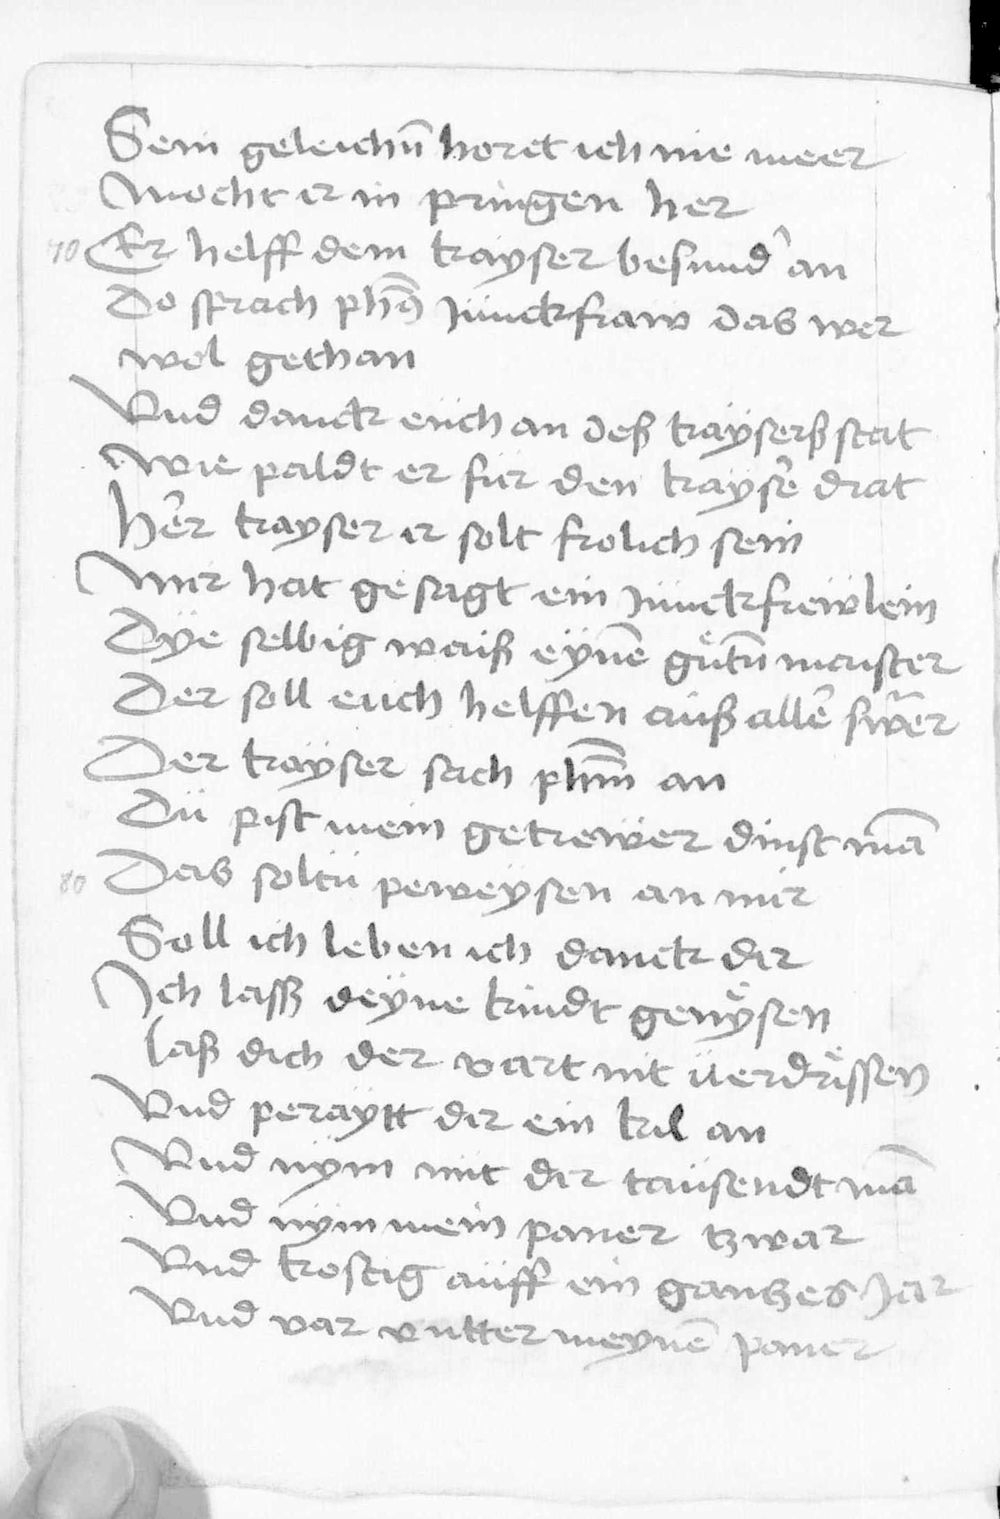 Sein geleichn̄ horet ich nie meer
Mocht er in pringen her
70 Er helff dem kayser besund' an
Do sprach phs̄ Junckfraw das wer
wol gethan
Vnd danck euch an deß kaÿserß stat
Wie paldt er für den kayse͛ drat
He͛r kayser er solt frolich sein
Mir hat gesagt ein Junckfrewlein
Dÿe selbig waiß eÿne͛ gůtn̄ maister
Der soll euch helffen auß alle͛ swer
Der kaÿser sach phm̄ an
Dü pist mein getrewer dinst mā
80 Das soltü peweÿsen an mir
Soll ich leben ich danck dir
Ich lasß deÿne kindt genÿͤsen
laß dich der vart nit üerdrͤissen
Vnd peraÿtt dir ein kil an
Vnd nÿm mit dir tausendt mā
Vnd nÿm mein paner tzwar
Vnd kostig aüff ein gantzes Jar
Vnd var vntter meÿnē paner